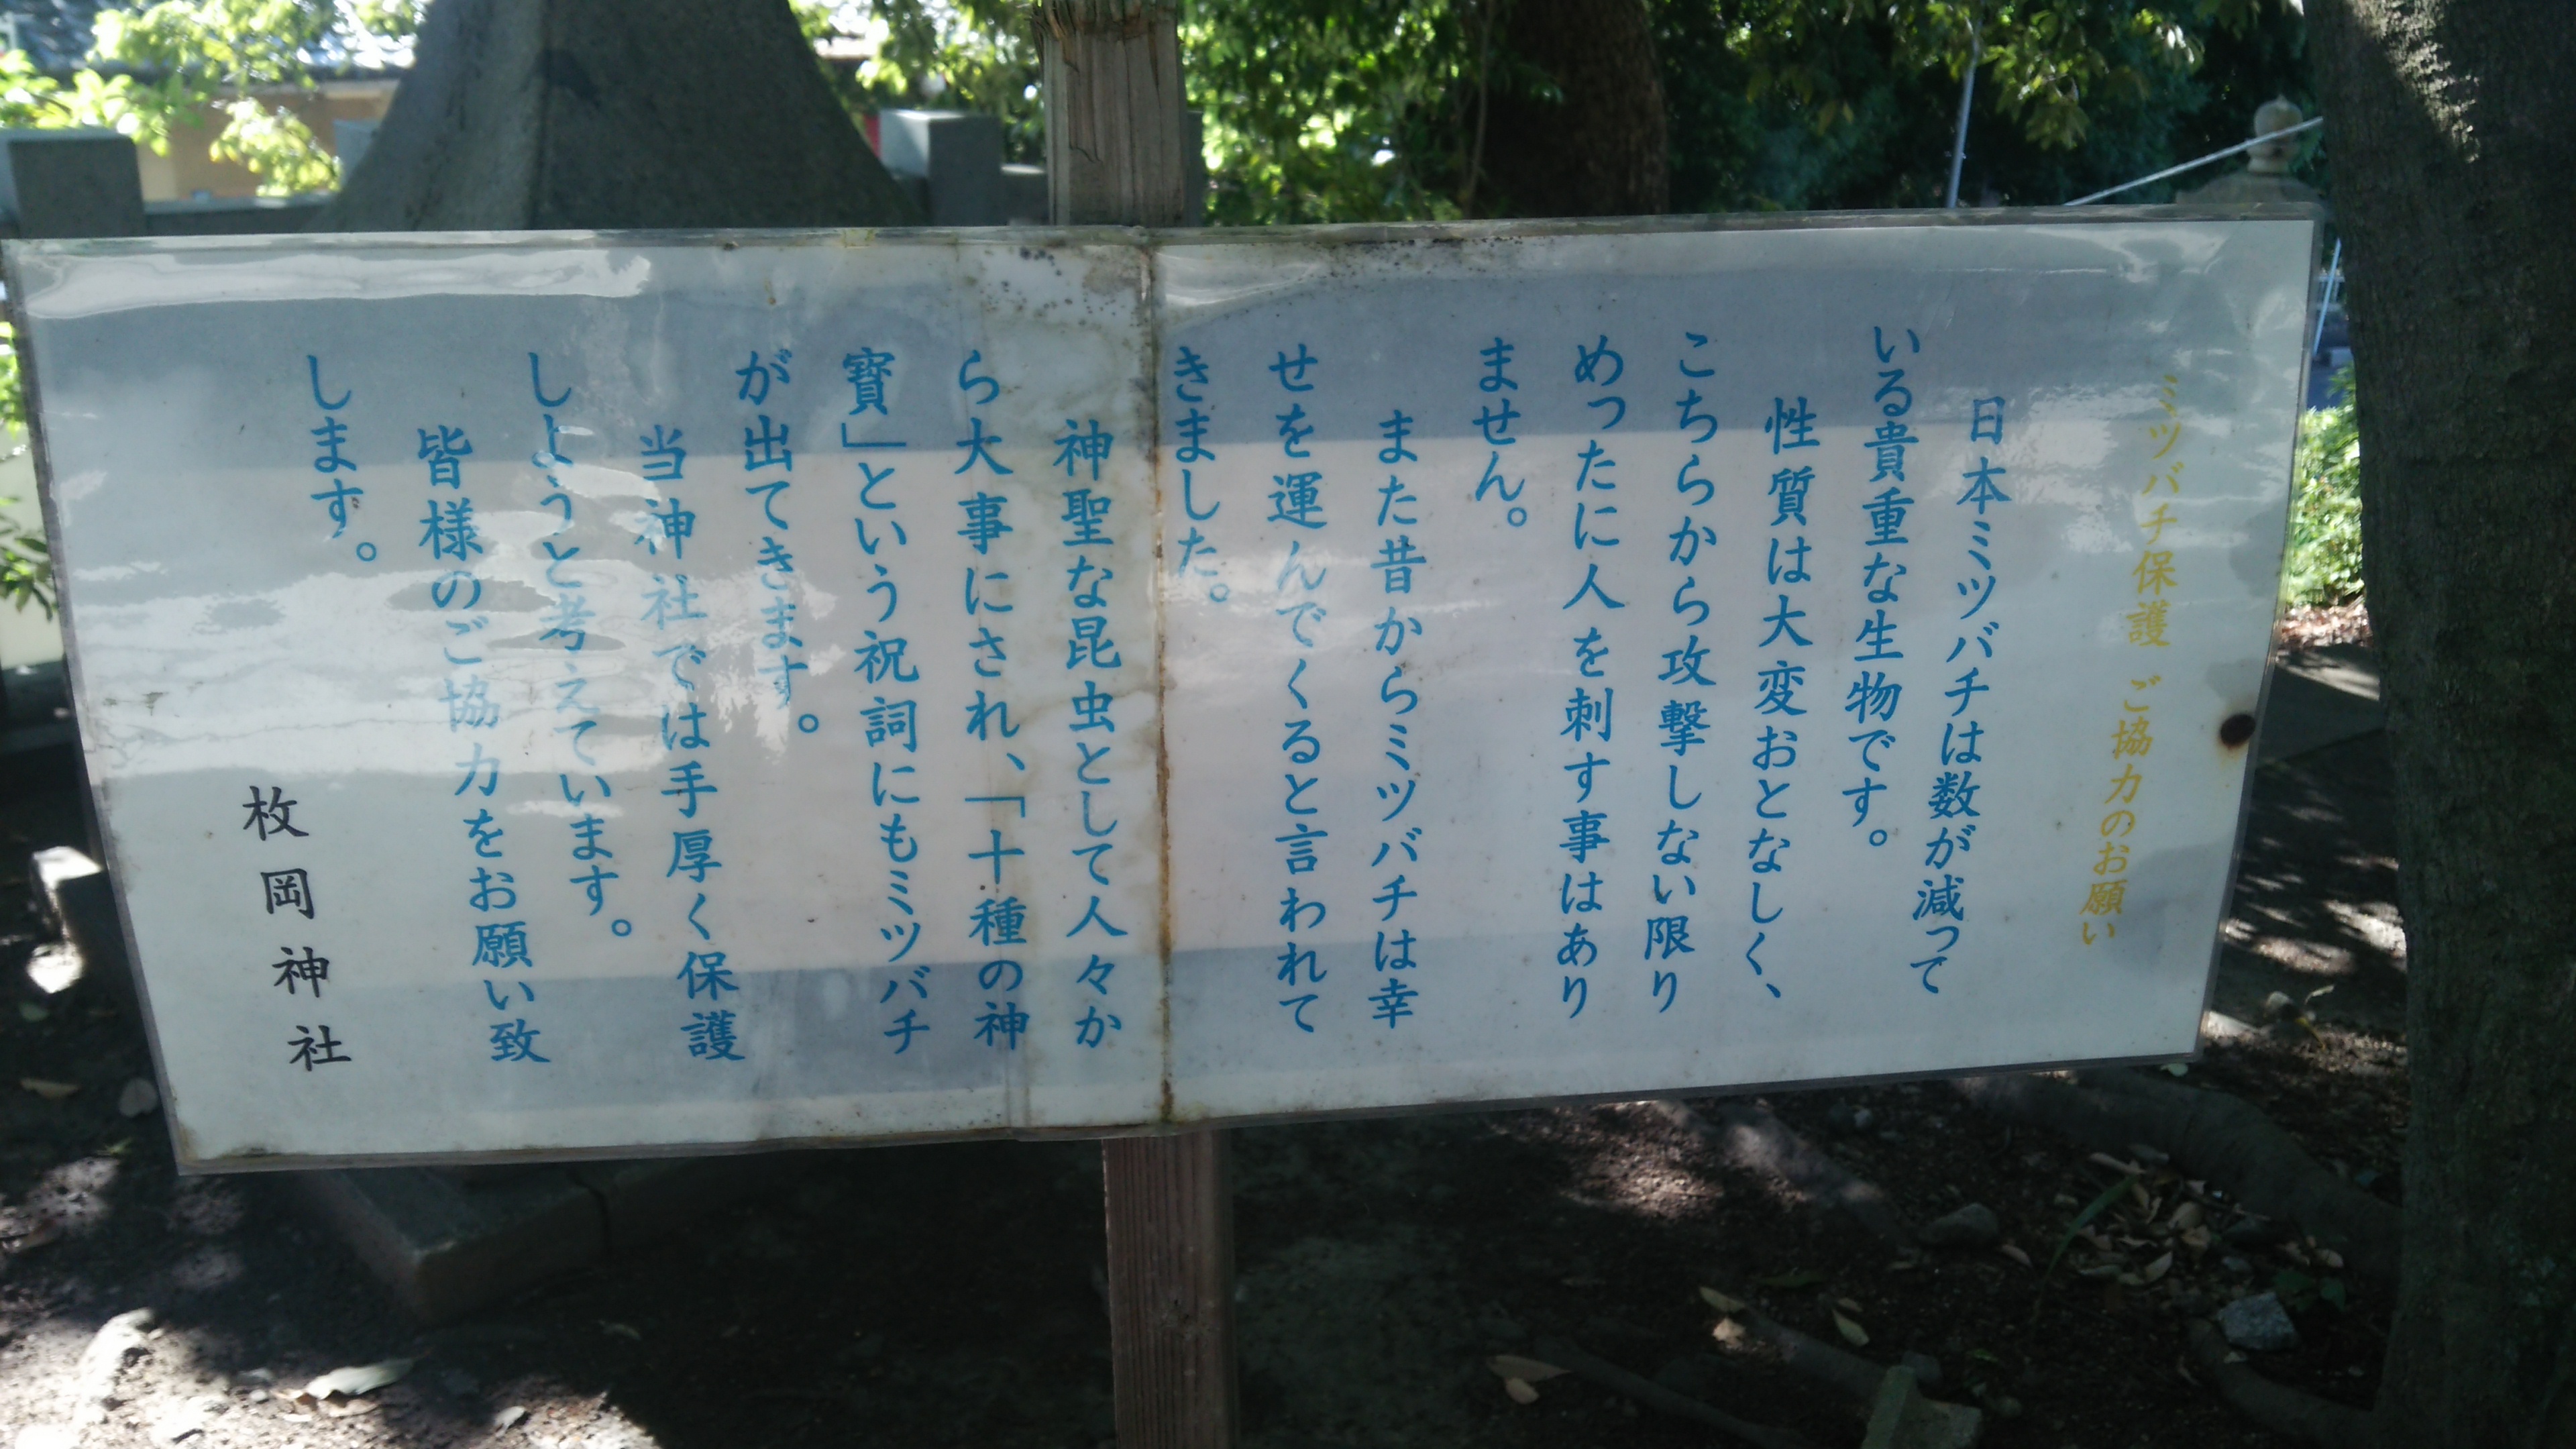 ミツバチ保護 ご協力のお願い
日本ミツバチは数が減って
いる貴重な生物です。
性質は大変おとなしく、
こちらから攻撃しない限り
めったに人を刺す事はあり
ません。
また昔からミツバチは幸
せを運んでくると言われて
きました。
神聖な昆虫として人々か
ら大事にされ、「十種の神
寳」という祝詞にもミツバチ
が出てきます。
当神社では手厚く保護
しようと考えています。
皆様のご協力をお願い致
します。
枚岡神社